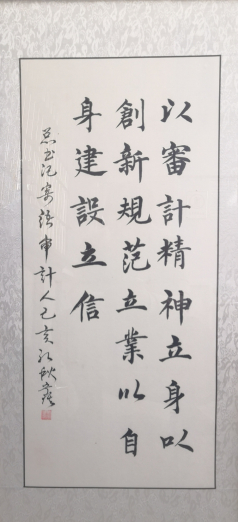 以審計精神立身以
創新規范立業以自
身建設立信
总书记寄语审计人己亥江